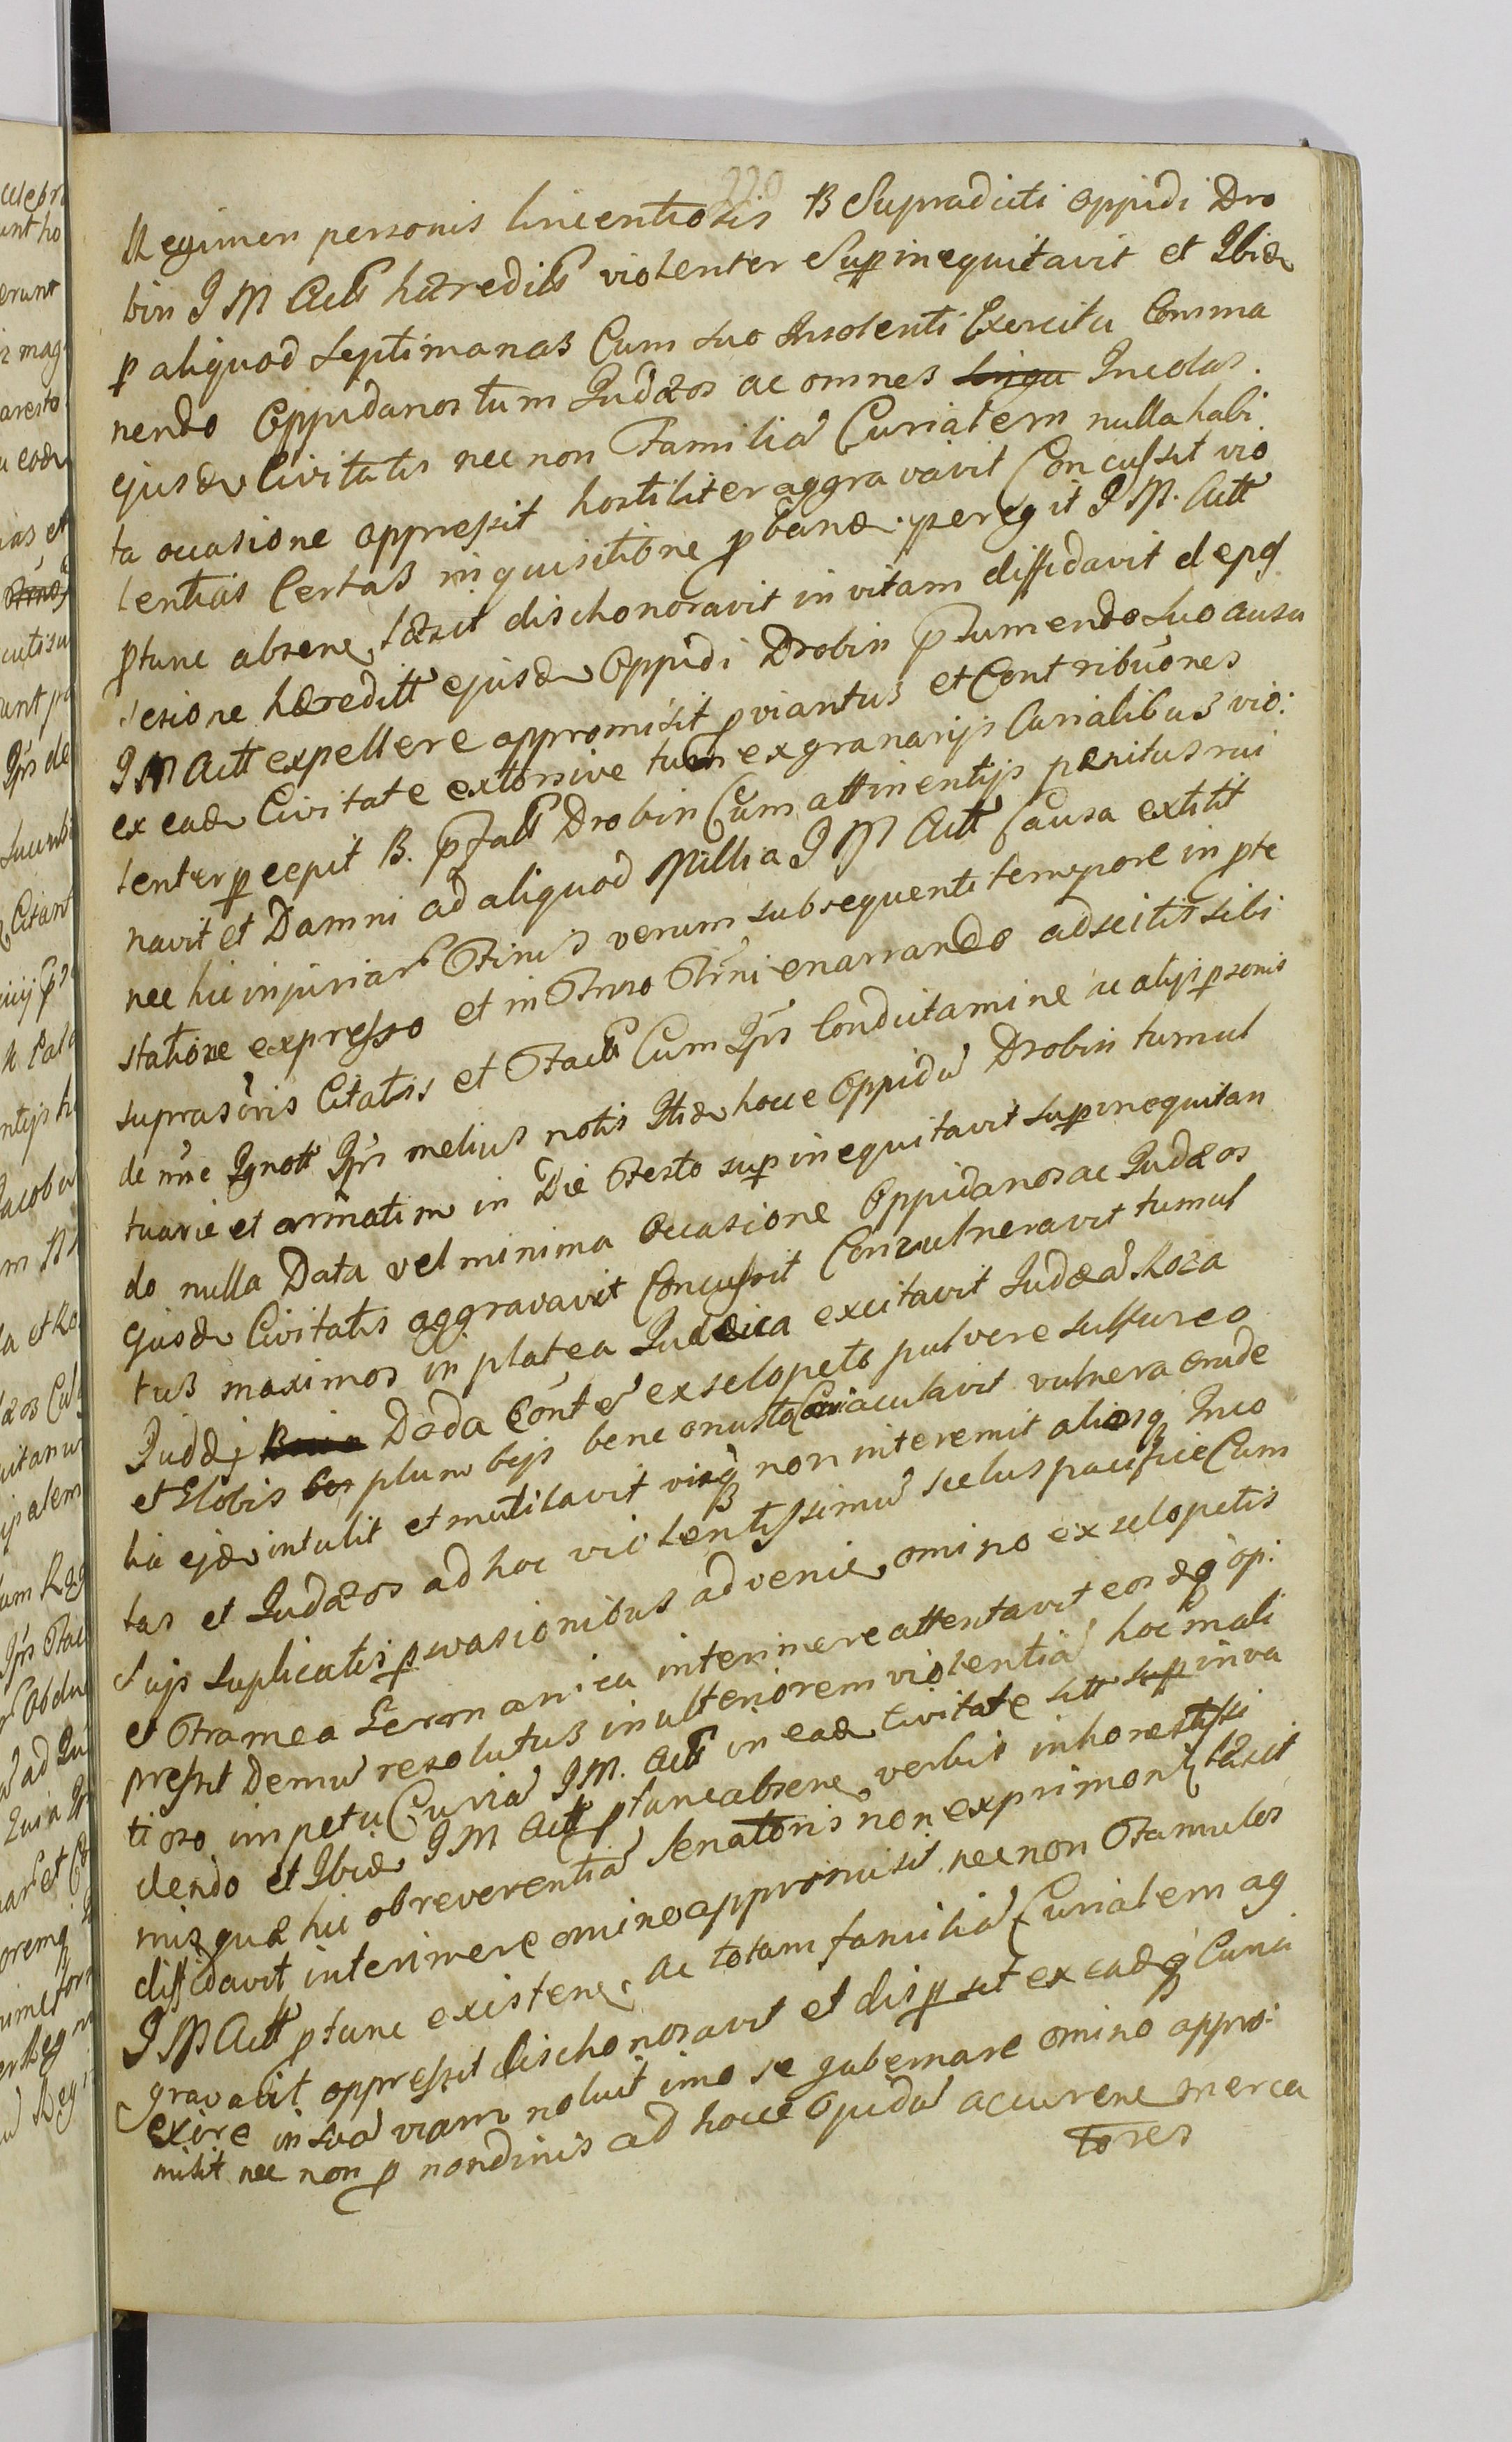 220
Regimen personis lincentiosis B Supradicti oppidi Dro
bin J M Actt hæreditt violenter Sup inequitavit et Ibid
p aliquod Septimanas Cum suo Insolenti Exercitu Comma
nendo Oppidanos tum Judæos ac omnes Incolas.
ejusd Civitatis nec non Familiã Curialem nulla habi
ta occasione oppressit hostiliter aggravavit Concussit vio
lentias Certas inquisitione pband peregit J M. Actt
ptunc absene, læsit dischonoravit in vitam diffidavit de
sesione hæreditt ejusd Oppidi Drobin sumendo suo ausu
J M Actt expellere appromisit proviantus et Contribuones
ex ead Civitate extorsive tum ex granarijs Curialibus vio:
lenter pcepit B. Drobin Cum attinentijs pænitus rui
navit et Damni ad aliquod Millia J M Actt Causa extitit
nec hic injuriar Finis verum subsequenti tempore in pte
statione expresso et in enarrando adscitis sibi
suprascris Citatis et Cum Ips Conductamine ac alijs psonis
de nne Ignott Ips melius notis Itid hocce Oppidũ Drobin tumul
tuarie et armatim in Die Festo sup inequitavit sup inequitan
do nulla Data vel minima occasione Oppidanos ac Judæos
ejusd Civitatis aggravavit Concussit Convulneravit tumul
tus maximos in platea Judaica excitavit Judæã Roza
Judæj Doda Conte ex sclopeto pulvere sulfureo
et Globis plumbejs bene onusto ejaculavit vulnera crude
lia ejd intulit et mutilavit vixq non interemit aliosq Inco
las et Judæos ad hoc violentissimũ scelus pacifice Cum
Sujs suplicatis pswasionibus advenie, omino ex sclopetis
et Framea Germanica interimere attentavit eosdq op:
pressit Demũ resolutus in ulteriorem violentiã hoc mali
tioso impetu Curiã J M. Actt in ead Civitate sitt sup inva
dendo et Ibid J M Actt ptunc absene, verbis inhonestissi
mis quæ hic ob reverentiã Senatoris non exprimon, læsit
diffidavit interimere omino appromisit nec non Famulos
J M Actt ptunc existene, ac totam familiã Curialem ag
gravavit oppressit dischonoravit et dispsit ex eadq Curia
exire in suã viam noluit imo se gubernare omino appro:
misit nec non p nondinis ad hocce Opidũ accurene merca
tores